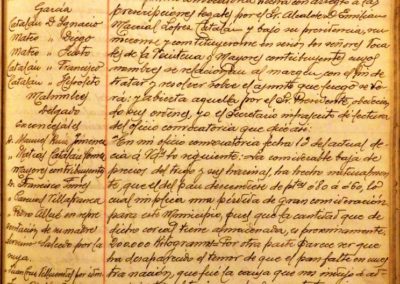 García
Catalán D. Ignacio
Mateo " Diego
Mateo " Justo
Catalán " Francisco
Catalán " Zoposeto
Malumbres
Delgado
Exconcejales
D. Manuel Ruiz Jimenez
" Matías Catalán Jimenez
Mayores contribuyentes
D. Francisco
" Manuel Villafranca
" Pedro Allué en repre
sentación de su madre
Salcedo por la
suya
Juan Cruz Villafranca por
prescripciones legales por el Sr. Alcalde D. Emiliano
Marcial López Catalán y bajo su presidencia, se
reunieron, y constituyeron en sesión los señores Voca
les de la Veintena y Mayores contribuyentes cuyos
nombres se relacionan al margen, con el fin de
tratar y resolver sobre el asunto que luego se di
rá; y abierta aquella por el Sr. Presidente, obedecien
do sus ordenes, yo el Secretario infrascrito di lectura
del oficio convocatoria que dice así:
"En mi oficio convocatoria fecha 13 del actual de
cía á V. lo siguiente: =La considerable baja de
precios del trigo y sus harinas, ha hecho natural men
te que el del pan descendiese de ptas 0,80 á 0,60, lo
cual implica una pérdida de gran consideración
para este Municipio, pues que la cantidad que de
dicho cereal tiene almacenada, es proximamente,
200.000 kilogramos= Por otra parte parece ser que
ha desaparecido el temor de que el pan falte en nues
tra nación, que fué la causa que nos indujo á ad